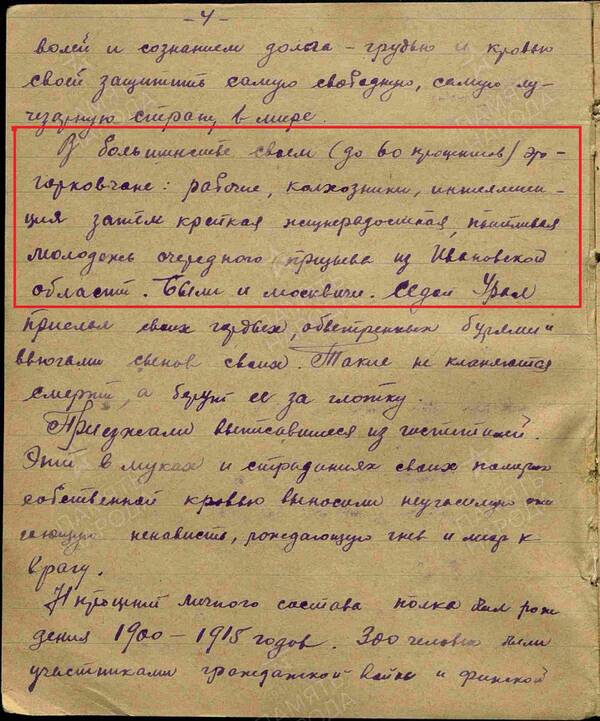 -4-
волей и сознанием долга - грудью и кровью
своей защитить самую свободную, самую лу-
чезарную страну в мире.
В большинстве своем (до 60 процентов) это -
горковчане: рабочие, колхозники, интеллиген-
ция затем крепкая жизнерадостная, пытливая
молодежь очередного призыва из Ивановской
области. Были и москвичи. Седой Урал
прислал своих гордых, обветренных бурями и
вьюгами сынов своих. Такие не кланяются
смерти, а берут ее за глотку.
Приезжали выписавшиеся из госпиталей.
Эти в муках и страданиях своих палатах
собственной кровью выносили неугасимую
ненависть, рождающую гнев и месть к
врагу.
процент личного состава полка был рож
дения 1900-1915 годов. 300 человек были
участниками гражданской войны и финской